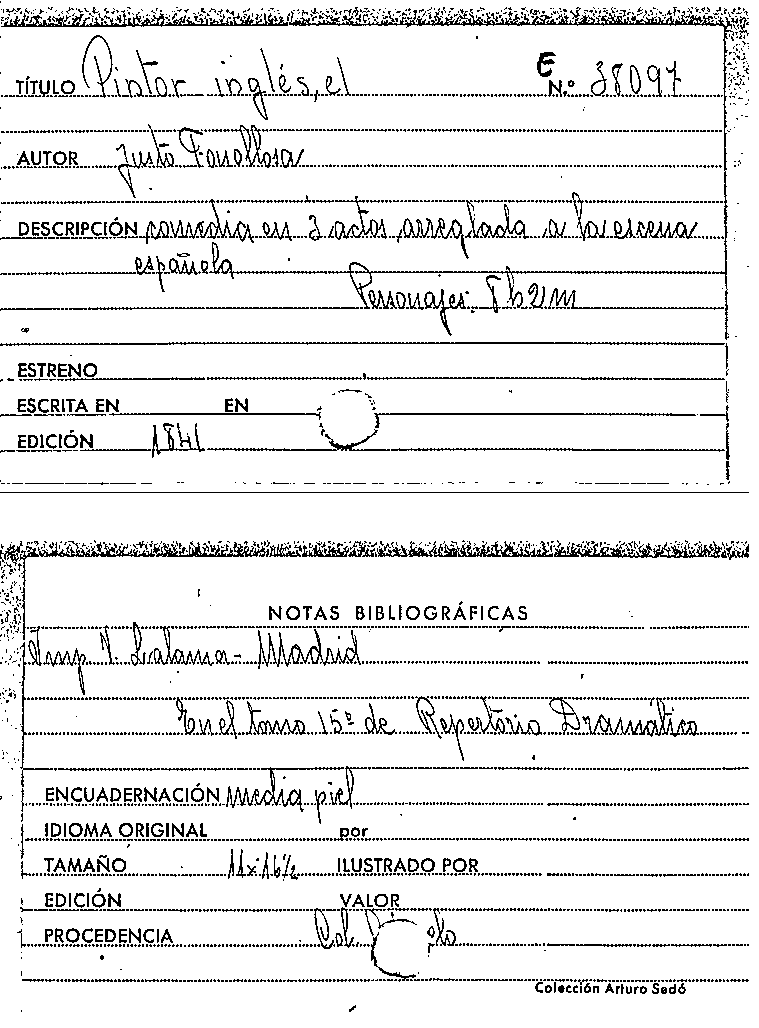 TÍTULO Pintor inglés, el E N.º 38097
AUTOR Justo Fonollosa
DESCRIPCIÓN comedia en 3 actos arreglada a la escena
española
Personajes: 8 h 2 m
ESTRENO
ESCRITA EN EN
EDICIÓN 1841
NOTAS BIBLIOGRÁFICAS
Imp. V. Lalama - Madrid
En el tomo 15º de Repertorio Dramático
ENCUADERNACIÓN media piel
IDIOMA ORIGINAL por
TAMAÑO 11x16½ ILUSTRADO POR
EDICIÓN VALOR
PROCEDENCIA Col.
Colección Arturo Sedó